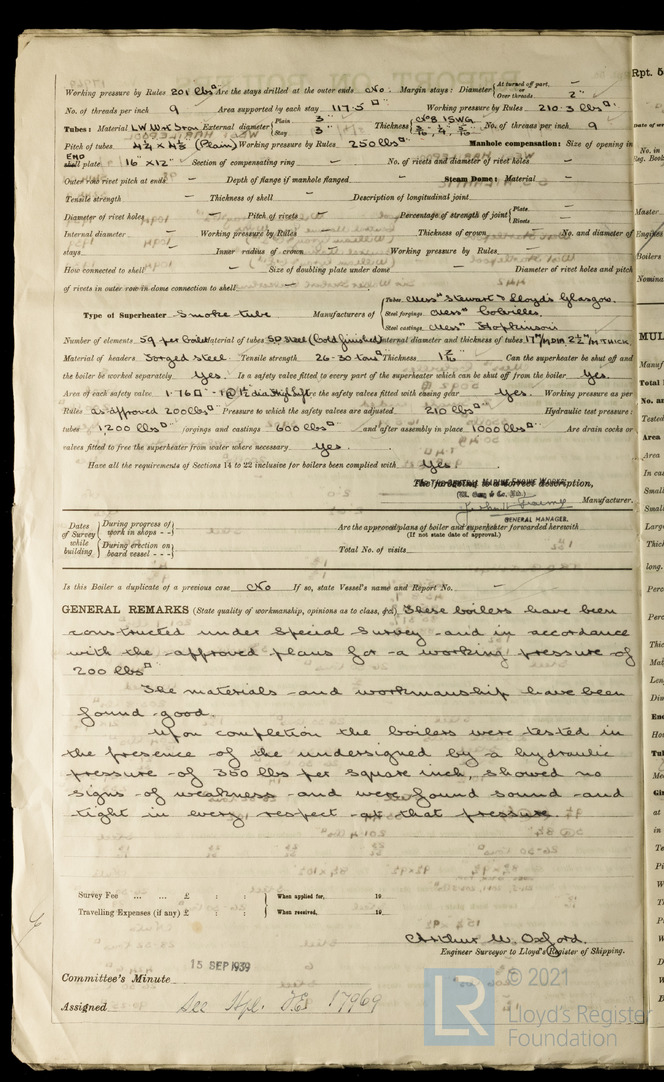 Working pressure by Rules 201 lbs□" Are the stays drilled at the outer ends No. Margin stays: Diameter { At turned off part, — or Over threads 2"
No. of threads per inch 9 Area supported by each stay 117.5 □" Working pressure by Rules 210.3 lbs□"
Tubes: Material LW Wrt Iron External diameter { Plain 3" Stay 3" Thickness { No. of threads per inch 9
Pitch of tubes (Plain) Working pressure by Rules 250 lbs□" Manhole compensation: Size of opening in
END shell plate 16" × 12" Section of compensating ring — No. of rivets and diameter of rivet holes —
Outer row rivet pitch at ends — Depth of flange if manhole flanged — Steam Dome: Material —
Tensile strength — Thickness of shell — Description of longitudinal joint —
Diameter of rivet holes — Pitch of rivets — Percentage of strength of joint { Plate — Rivets —
Internal diameter — Working pressure by Rules — Thickness of crown — No. and diameter of
stays — Inner radius of crown — Working pressure by Rules —
How connected to shell — Size of doubling plate under dome — Diameter of rivet holes and pitch
of rivets in outer row in dome connection to shell —
Type of Superheater Smoke tube Manufacturers of { Tubes Mess" Stewart & Lloyds Glasgow.
Steel forgings Mess" Colvilles.
Steel castings Mess" Stephenson
Number of elements 59 per boiler Material of tubes SD Steel (Cold finished) Internal diameter and thickness of tubes 17 M/M DIA 2½ M/M THICK.
Material of headers Forged steel. Tensile strength 26-30 tons□" Thickness Can the superheater be shut off and
the boiler be worked separately Yes. Is a safety valve fitted to every part of the superheater which can be shut off from the boiler Yes.
Area of each safety valve 1.76□" Are the safety valves fitted with easing gear Yes. Working pressure as per
Rules as approved 200 lbs□" Pressure to which the safety valves are adjusted 210 lbs□" Hydraulic test pressure:
tubes 1200 lbs□" forgings and castings 600 lbs□" and after assembly in place 1000 lbs□" Are drain cocks or
valves fitted to free the superheater from water where necessary Yes.
Have all the requirements of Sections 14 to 22 inclusive for boilers been complied with Yes.
The foregoing is a correct description,
Manufacturer.
GENERAL MANAGER.
Dates of Survey while building { During progress of work in shops - - { During erection on board vessel - - -
Are the approved plans of boiler and superheater forwarded herewith
(If not state date of approval.)
Total No. of visits
Is this Boiler a duplicate of a previous case No If so, state Vessel's name and Report No. —
GENERAL REMARKS (State quality of workmanship, opinions as to class, &c.) These boilers have been
constructed under Special Survey and in accordance
with the approved plans for a working pressure of
200 lbs□"
The materials and workmanship have been
found good.
Upon completion the boilers were tested in
the presence of the undersigned by a hydraulic
pressure of 350 lbs per square inch, showed no
signs of weakness and were found sound and
tight in every respect at that pressure.
Survey Fee ... ... £ : : When applied for, 19
Travelling Expenses (if any) £ : : When received, 19
Arthur W. Oxford.
Engineer Surveyor to Lloyd's Register of Shipping.
15 SEP 1939
Committee's Minute
Assigned See Hpl. J.E. 17969
© 2021
LR
Lloyd's Register
Foundation
Rpt. 5